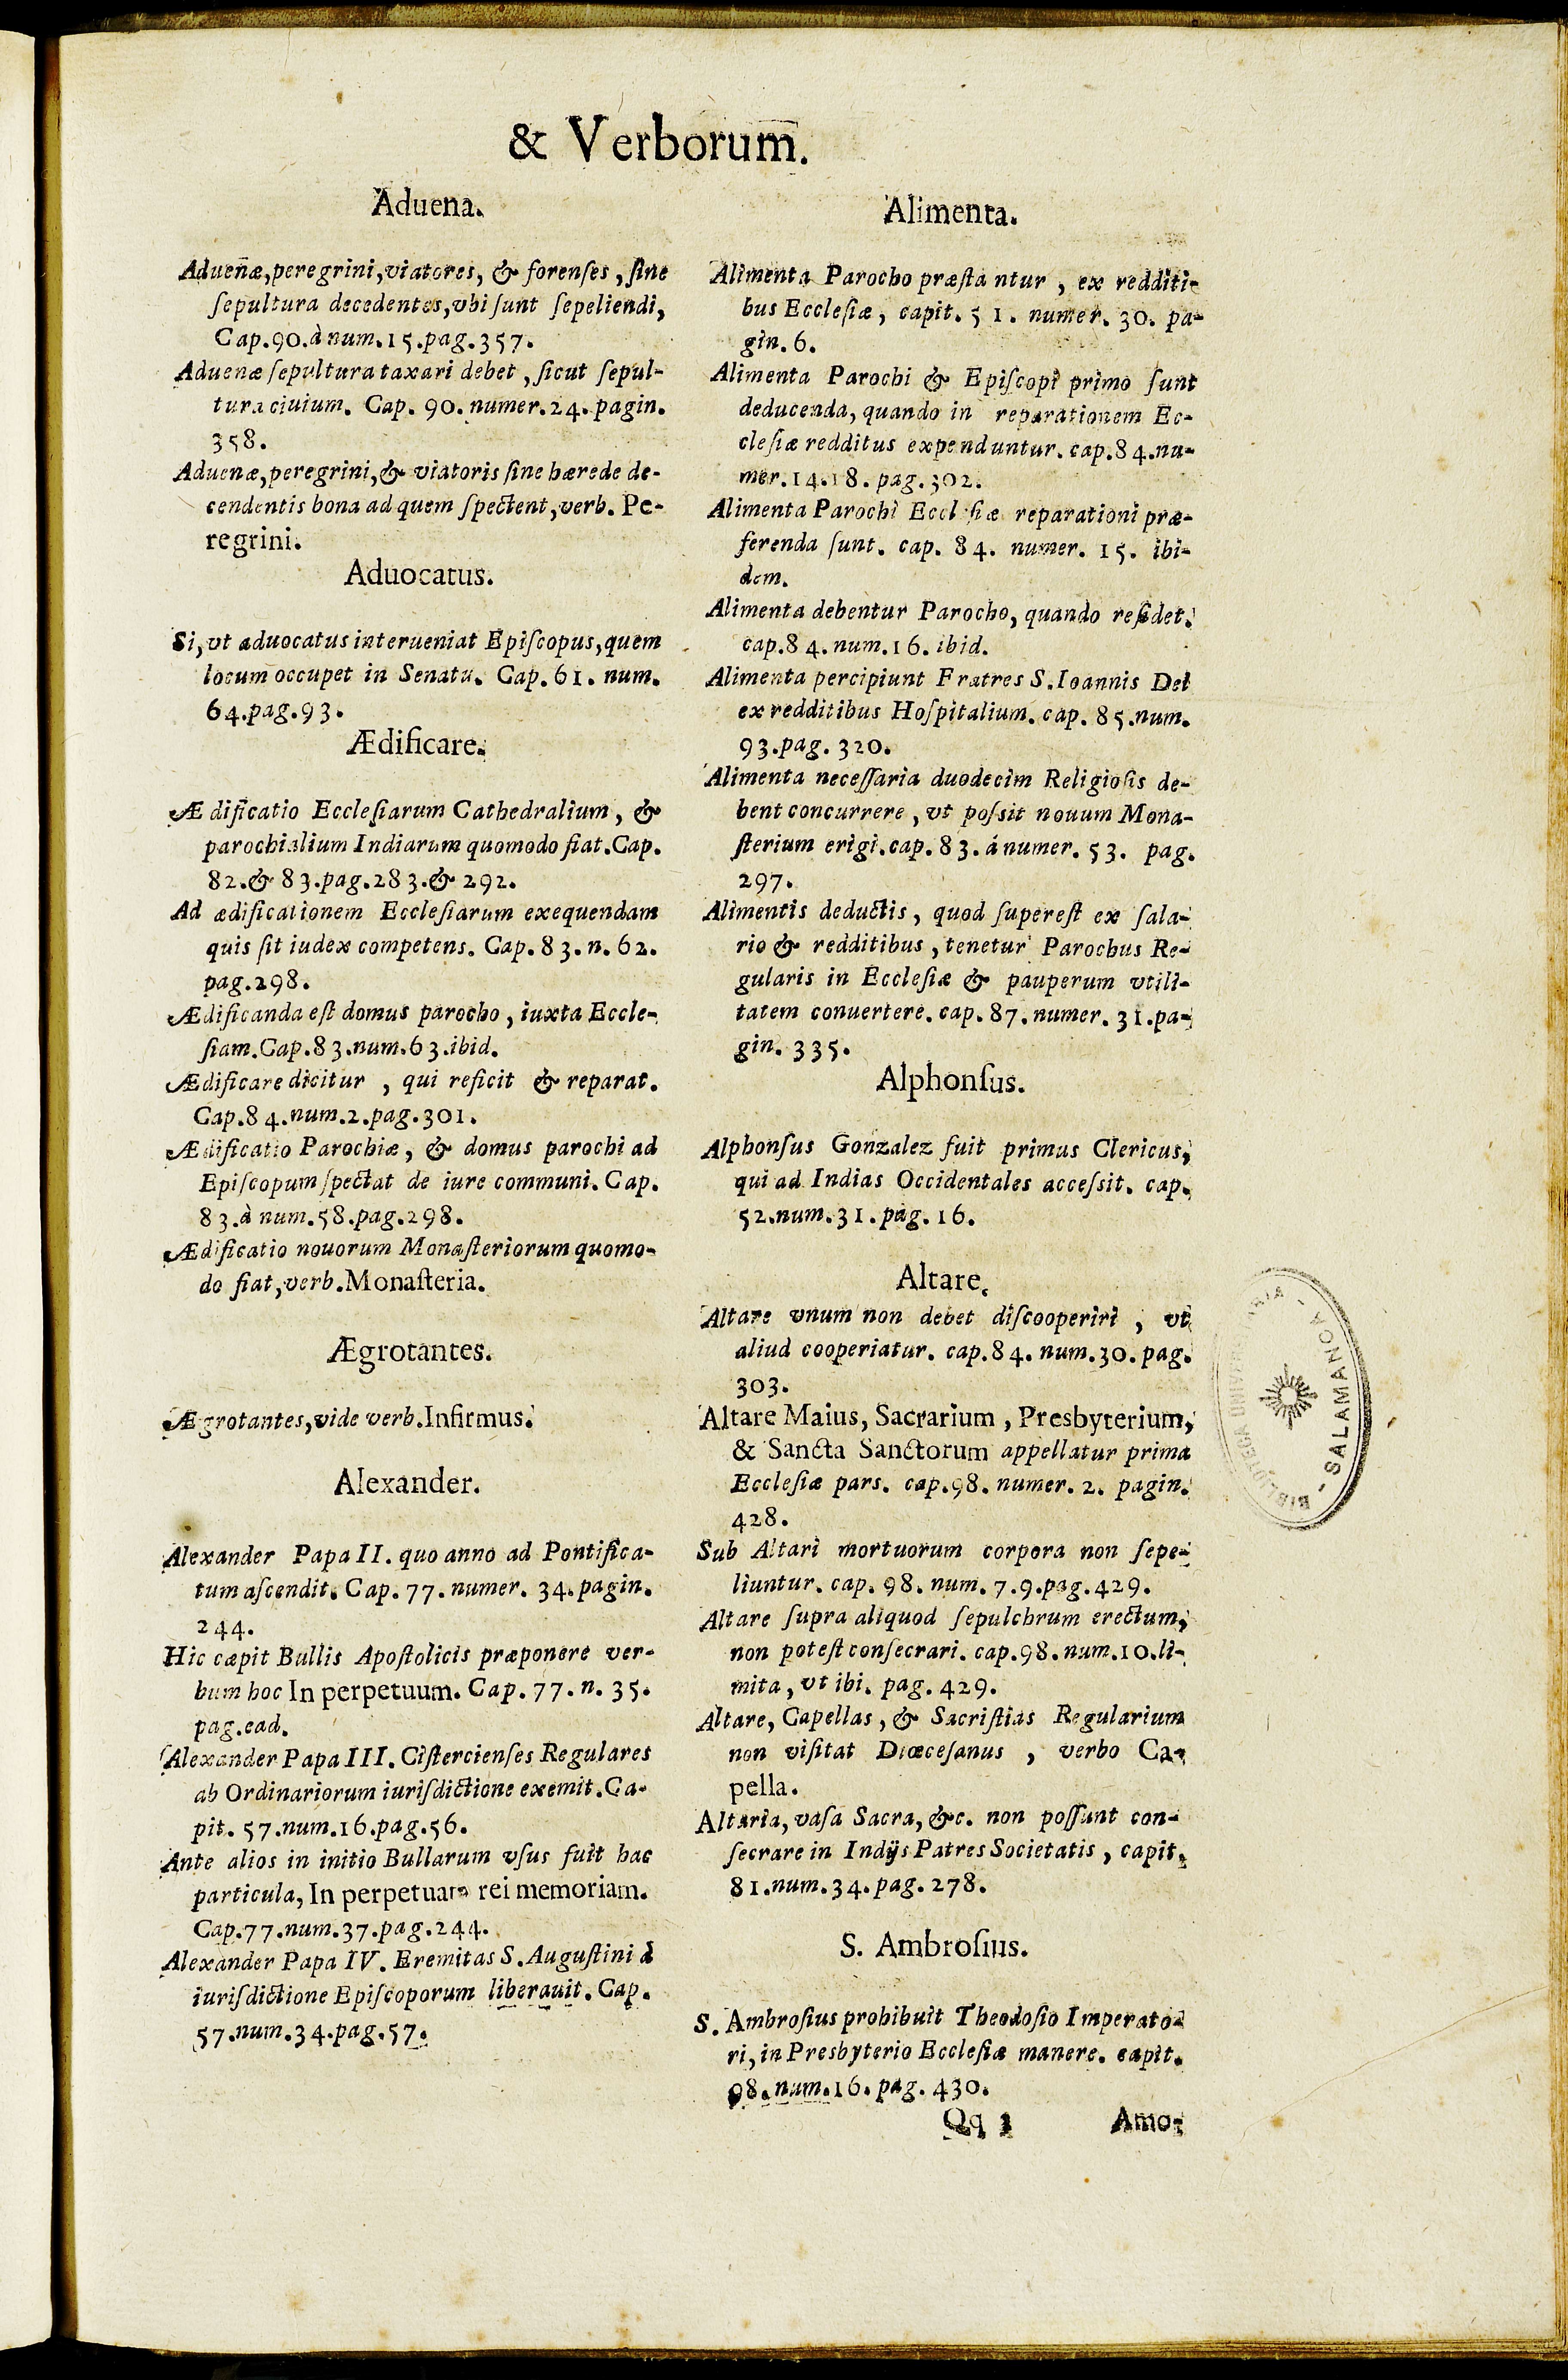 & Verborum.
Aduena.
Adueñæ, peregrini, viatores, & forenſes, ſine
ſepultura decedentes, vbi ſunt ſepeliendi,
Cap. 90. à num. 15. pag. 357.
Aduenæ ſepultura taxari debet, ſicut ſepul-
tura ciuium. Cap. 90. numer. 24. pagin.
358.
Aduenæ, peregrini, & viatoris ſine hærede de-
cendentis bona ad quem ſpectent, verb. Pe-
regrini.
Aduocatus.
Si, vt aduocatus interueniat Epiſcopus, quem
locum occupet in Senatu. Cap. 61. num.
64. pag. 93.
Ædificare.
Ædificatio Eccleſiarum Cathedralium, &
parochialium Indiarum quomodo fiat. Cap.
82. & 83. pag. 283. & 292.
Ad ædificationem Eccleſiarum exequendam
quis ſit iudex competens. Cap. 83. n. 62.
pag. 298.
Ædificanda eſt domus parocho, iuxta Eccle-
ſiam. Cap. 83. num. 63. ibid.
Ædificare dicitur, qui reficit & reparat.
Cap. 84. num. 2. pag. 301.
Ædificatio Parochiæ, & domus parochi ad
Epiſcopum ſpectat de iure communi. Cap.
83. à num. 58. pag. 298.
Ædificatio nouorum Monaſteriorum quomo-
do fiat, verb. Monaſteria.
Ægrotantes.
Ægrotantes, vide verb. Infirmus.
Alexander.
Alexander Papa II. quo anno ad Pontifica-
tum aſcendit. Cap. 77. numer. 34. pagin.
244.
Hic cæpit Bullis Apoſtolicis præponere ver-
bum hoc In perpetuum. Cap. 77. n. 35.
pag. ead.
Alexander Papa III. Ciſtercienſes Regulares
ab Ordinariorum iuriſdictione exemit. Ca-
pit. 57. num. 16. pag. 56.
Ante alios in initio Bullarum vſus fuit hac
particula, In perpetuam rei memoriam.
Cap. 77. num. 37. pag. 244.
Alexander Papa IV. Eremitas S. Auguſtini à
iuriſdictione Epiſcoporum liberauit. Cap.
57. num. 34. pag. 57.
Alimenta.
Alimenta Parocho præſtantur, ex redditi-
bus Eccleſiæ, capit. 51. numer. 30. pa-
gin. 6.
Alimenta Parochi & Epiſcopi primo ſunt
deducenda, quando in reparationem Ec-
cleſiæ redditus expenduntur. cap. 84. nu-
mer. 14. 18. pag. 302.
Alimenta Parochi Eccl ſiæ reparationi præ-
ferenda ſunt. cap. 84. numer. 15. ibi-
dem.
Alimenta debentur Parocho, quando reſidet.
cap. 84. num. 16. ibid.
Alimenta percipiunt Fratres S. Ioannis Dei
ex redditibus Hoſpitalium. cap. 85. num.
93. pag. 320.
Alimenta neceſſaria duodecim Religioſis de-
bent concurrere, vt poſsit nouum Mona-
ſterium erigi. cap. 83. à numer. 53. pag.
297.
Alimentis deductis, quod ſupereſt ex ſala-
rio & redditibus, tenetur Parochus Re-
gularis in Eccleſiæ & pauperum vtili-
tatem conuertere. cap. 87. numer. 31. pa-
gin. 335.
Alphonſus.
Alphonſus Gonzalez fuit primus Clericus,
qui ad Indias Occidentales acceſsit. cap.
52. num. 31. pag. 16.
Altare.
Altare vnum non debet diſcooperiri, vt
aliud cooperiatur. cap. 84. num. 30. pag.
303.
Altare Maius, Sacrarium, Presbyterium,
& Sancta Sanctorum appellatur prima
Eccleſiæ pars. cap. 98. numer. 2. pagin.
428.
Sub Altari mortuorum corpora non ſepe-
liuntur. cap. 98. num. 7. 9. pag. 429.
Altare ſupra aliquod ſepulchrum erectum,
non poteſt conſecrari. cap. 98. num. 10. li-
mita, vt ibi. pag. 429.
Altare, Capellas, & Sacriſtias Regularium
non viſitat Diœceſanus, verbo Ca-
pella.
Altaria, vaſa Sacra, &c. non poſſunt con-
ſecrare in Indijs Patres Societatis, capit.
81. num. 34. pag. 278.
S. Ambroſius.
S. Ambroſius prohibuit Theodoſio Imperato-
ri, in Presbyterio Eccleſiæ manere. capit.
98. num. 16. pag. 430.
Qq 3 Amo-
BIBLIOTECA - SALAMANCA -